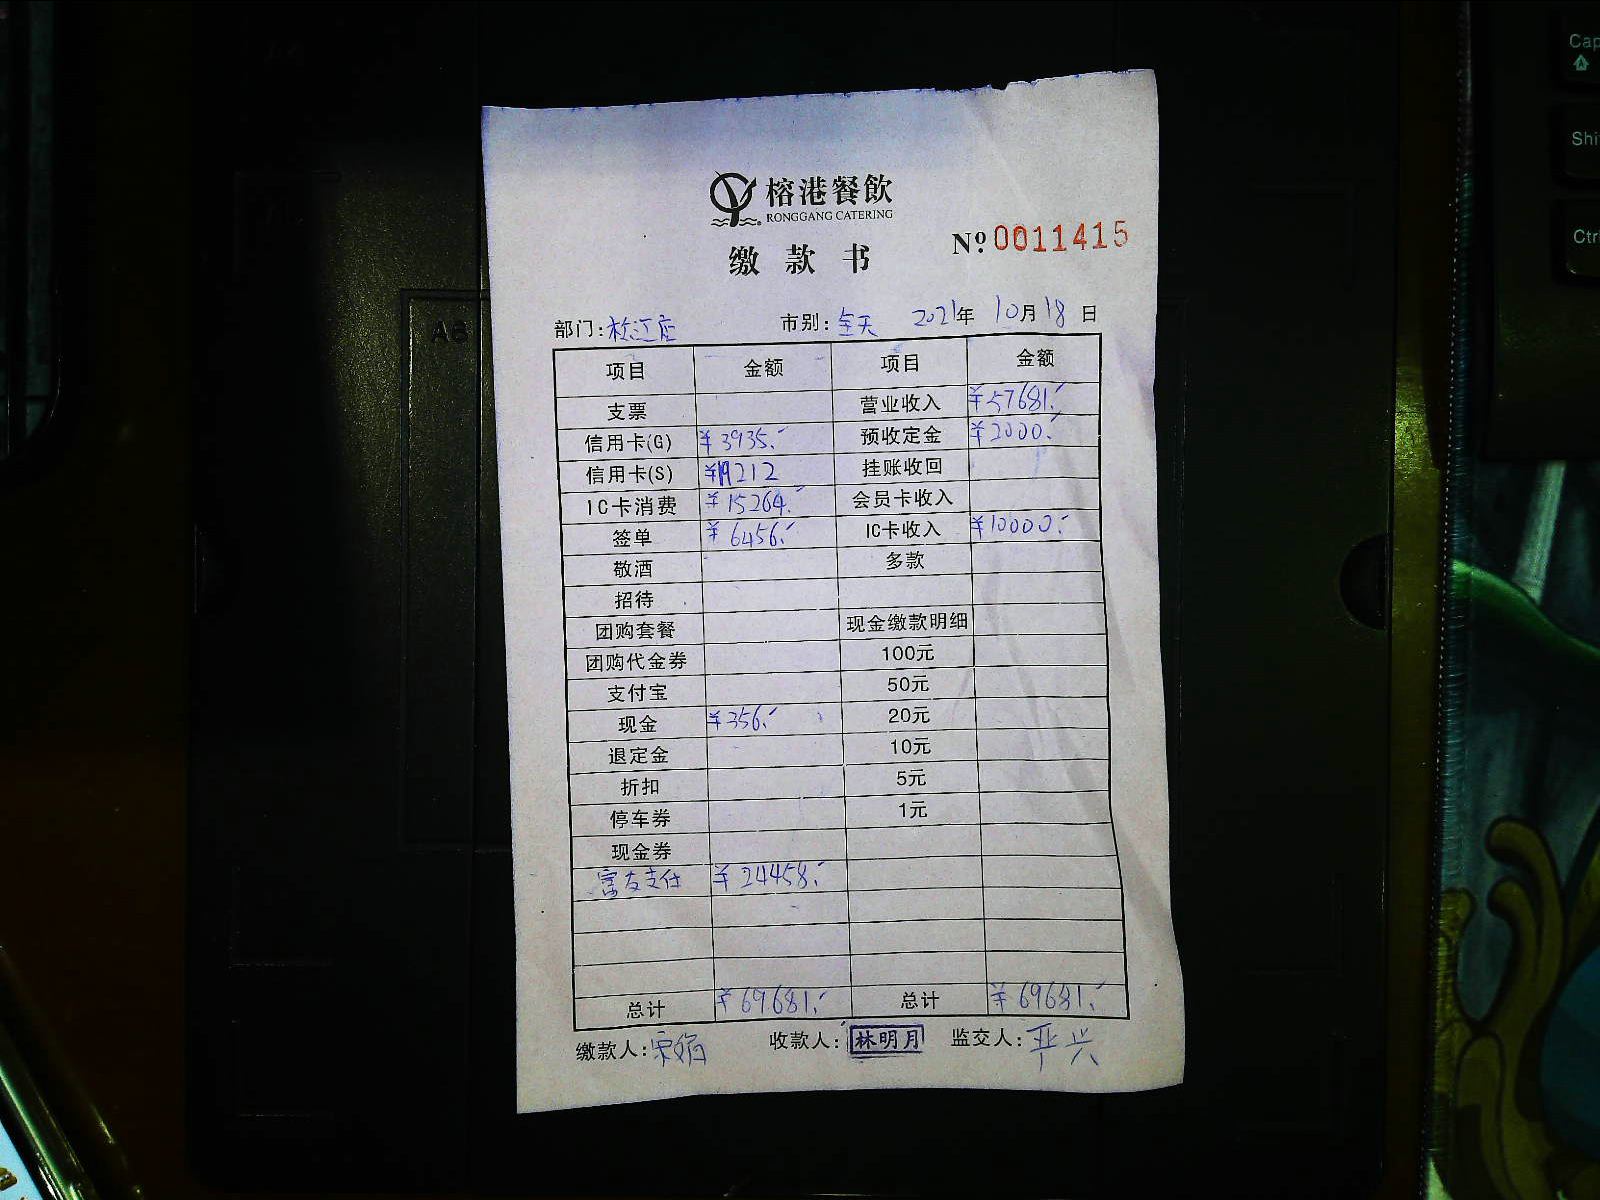 榕港餐飲
RONGGANG CATERING
缴款书
Nº 0011415
部门:松江店 市别:全天 2021年 10月18日
项目 金额 项目 金额
支票 营业收入 ¥57681.-
信用卡(G) ¥3935.- 预收定金 ¥2000.-
信用卡(S) ¥19212 挂账收回
IC卡消费 ¥15264.- 会员卡收入
签单 ¥6456.- IC卡收入 ¥10000.-
敬酒 多款
招待
团购套餐 现金缴款明细
团购代金券 100元
支付宝 50元
现金 ¥356.- 20元
退定金 10元
折扣 5元
停车券 1元
现金券
富友支付 ¥24458.-
总计 ¥69681.- 总计 ¥69681.-
缴款人: 收款人:林明月 监交人:
A6
Cap
Shi
Ctr